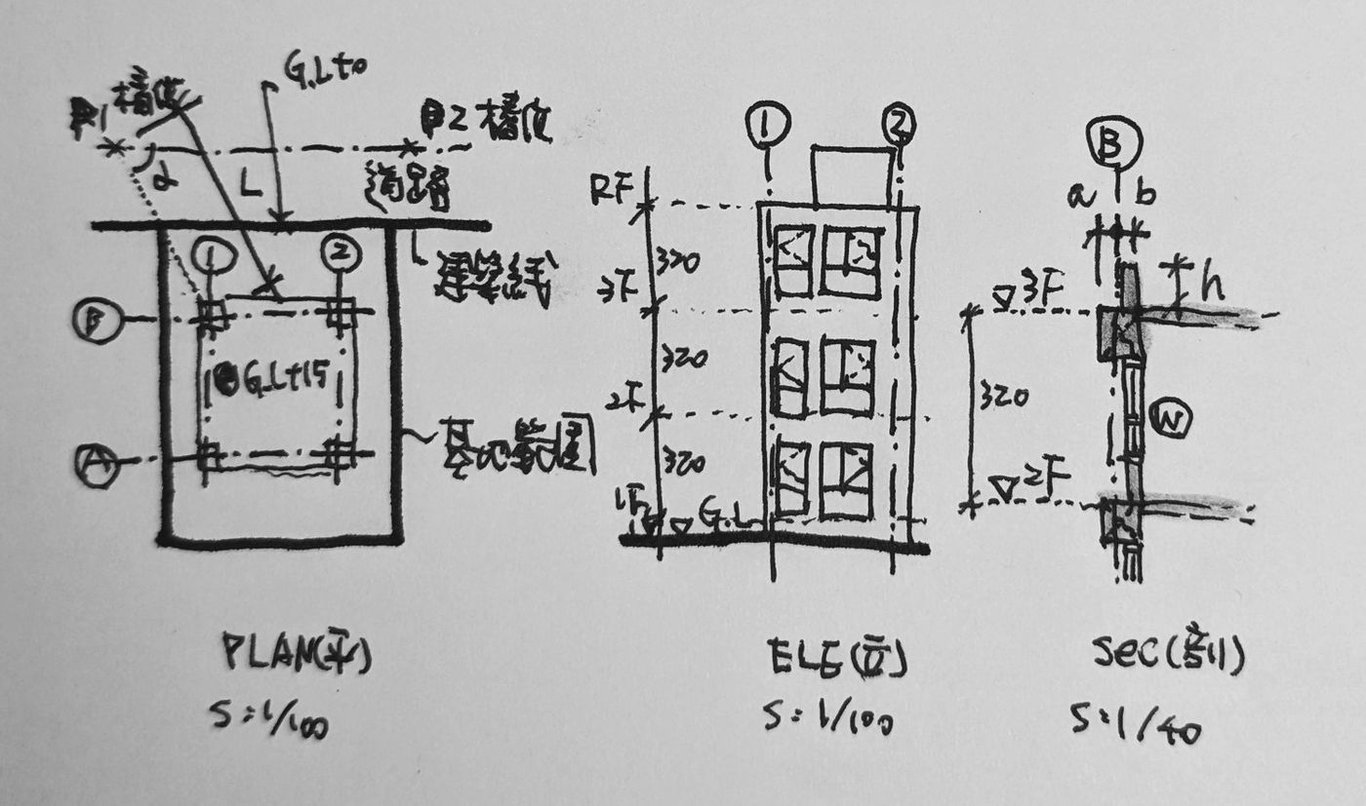 G.L±0
P1樁位
P2樁位
α
L
道路
1
2
建築線
B
G.L+15
A
基地範圍
PLAN(平)
S:1/100
1
2
RF
320
3F
320
2F
320
1F
G.L
ELE(立)
S:1/100
B
a
b
3F
h
320
W
2F
SEC(剖)
S:1/40